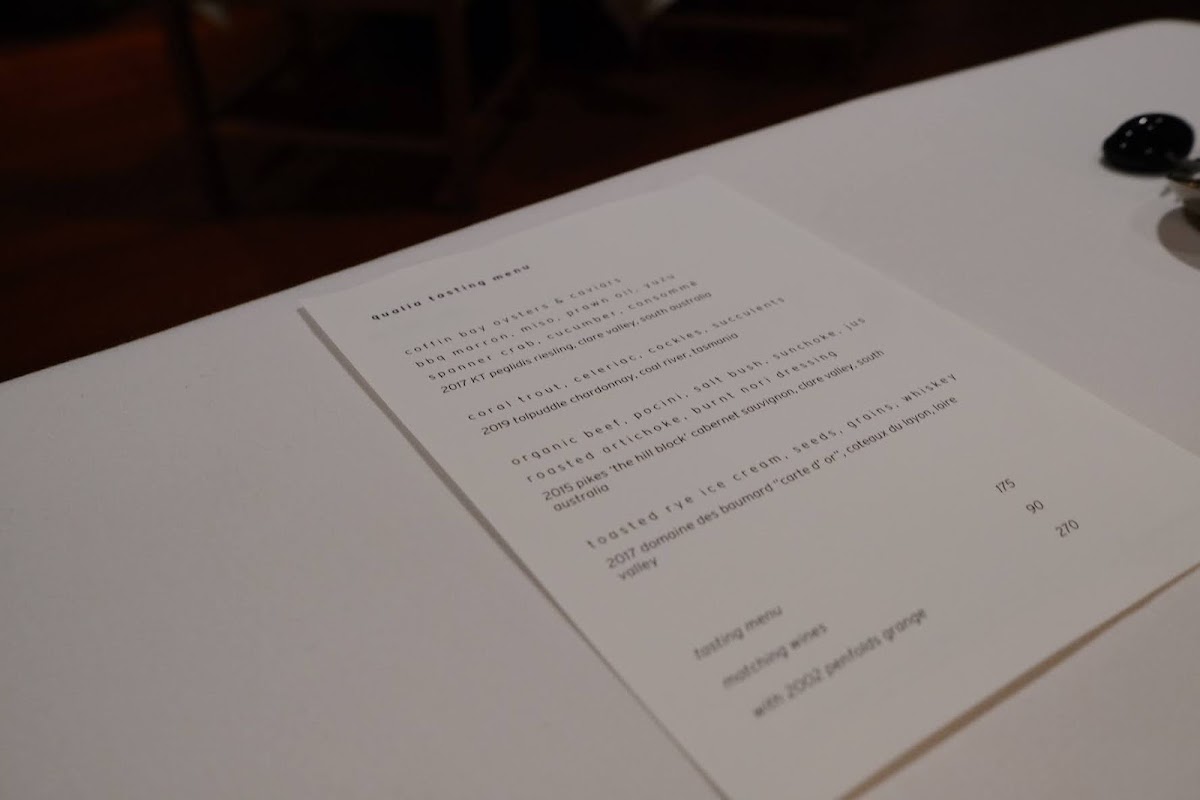 qualia tasting menu
coffin bay oysters & caviars
bbq marron, miso, prawn oil, yuzu
spanner crab, cucumber, consommé
2017 KT peglidis riesling, clare valley, south australia
coral trout, celeriac, cockles, succulents
2019 tolpuddle chardonnay, coal river, tasmania
organic beef, pocini, salt bush, sunchoke, jus
roasted artichoke, burnt nori dressing
2015 pikes 'the hill block' cabernet sauvignon, clare valley, south
australia
toasted rye ice cream, seeds, grains, whiskey
2017 domaine des baumard "carte d' or" , coteaux du layon, loire
valley
tasting menu 175
matching wines 90
with 2002 penfolds grange 270